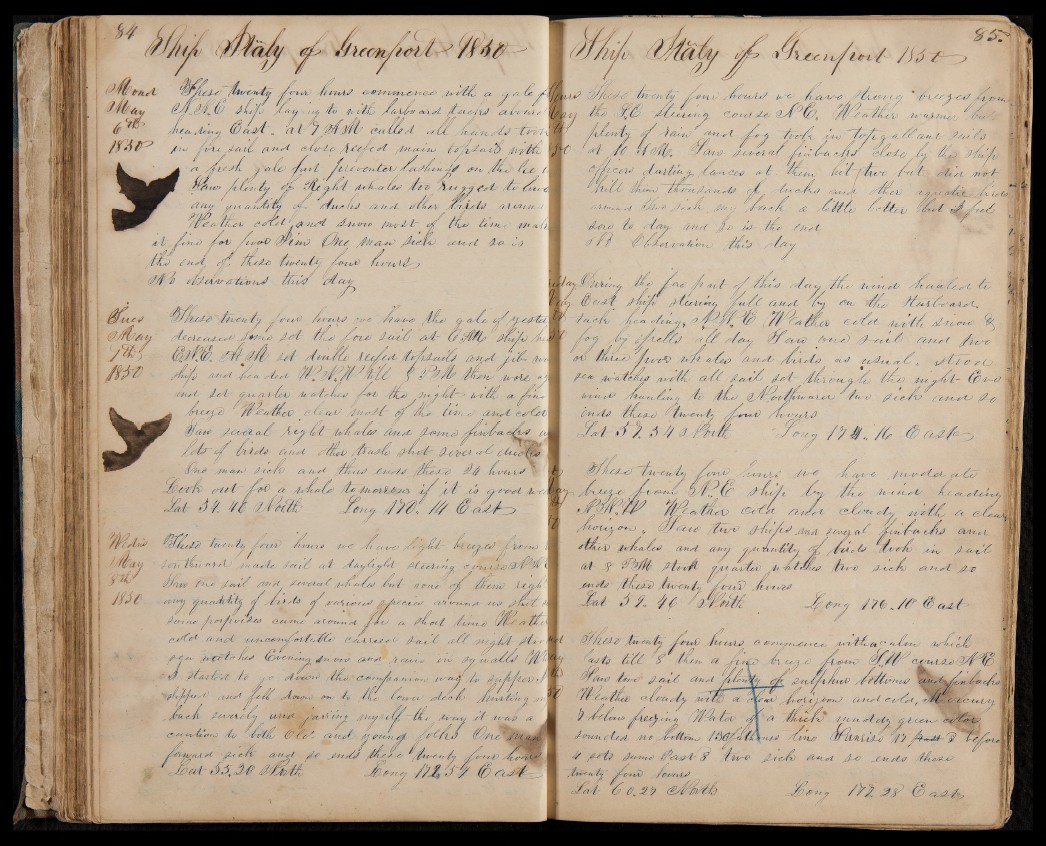 84
Ship Italy of Greenport 1850
Mond
May
6th
1850
These twenty four hours commence with a gale
N.N.E ship laying to with larboard tacks aboard
heading East. at 7 AM called all hands took
in fore sail and close reefed main topsail with
a fresh gale put preventer lashings on the lee
Saw plenty of Right whales too rugged to lower
any quantity of ducks and other birds around
Weather cold and snow most of the time
it fine for poor Jim One man sick and so is
the end of these twenty four hours
No observations this day
Tues
May
7th
1850
These twenty four hours we have the gale of
decreased some set the fore sail at 6 AM ship
E.N.E. set double reefed topsails and jib
ship and headed W.N.W till 8 PM then wore
and set quarter watches for the night with a fine
breeze Weather clear most of the time and cold
Saw several right whales and some finbacks
lots of birds and other trash shot several ducks
One man sick and thus ends these 24 hours
Look out for a whale tomorrow if it is good
Lat 54.46 North Long 170.14 East
Wedns
May
8th
1850
These twenty four hours we have light breezes from
southward made sail at daylight steering course
Saw one sail and several whales but none of them right
any quantity of birds of various species around us shot
some porpoises came around for a short time Weather
cold and uncomfortable carried sail all night
sea watches Evening snow and rain in squalls
I started to go down the companion way to supper
slipped and fell down on to the lower deck hurting
back severely and jarring myself the way it was a
caution to both Old and young folks One man
forward sick and so ends these twenty four hours
Lat 55.20 North Long 172.54 East
85
Ship Italy of Greenport 1850
These twenty four hours we have strong breezes from
the S.E steering course N.E. Weather warmer but
plenty of rain and fog took in top gallant sails
at 10 AM. Saw several finbacks close by the ship
officers darting lances at them hit two but did not
kill them thousands of ducks and other aquatic birds
around Two sick, my back a little better but I feel
sore to day and so is the end
No Observation this day
During the fore part of this day the wind hauled to
East ship steering full and by on the starboard
tack heading N.N.E Weather cold with snow &
fog by spells all day Saw one sail and two
or three poor whales and birds as usual. stood
sea watches with all sail set through the night Eve
wind hauling to the Northward two sick and so
ends these twenty four hours
Lat 57.54 North Long 174.16 East
These twenty four hours we have moderate
breeze from N.E ship by the wind heading
Weather cold and cloudy with a clear
horizon. Saw two ships and several finbacks and
other whales and any quantity of birds took in sail
at 8 PM stood quarter watches two sick and so
ends these twenty four hours
Lat 59.46 North Long 176.10 East
These twenty four hours commence with a calm which
lasts till 8 then a fine breeze from S.W course N.E
Saw two sail and plenty of sulphur bottoms and finbacks
Weather cloudy with a clear horizon and cold, Mercury
7 below freezing Water of a thick muddy green color
sounded no bottom 130 fathoms line Sunrise 17 past 3 before
4 sets some Past 8 two sick and so ends these
twenty four hours
Lat 60.24 North Long 177.28 East